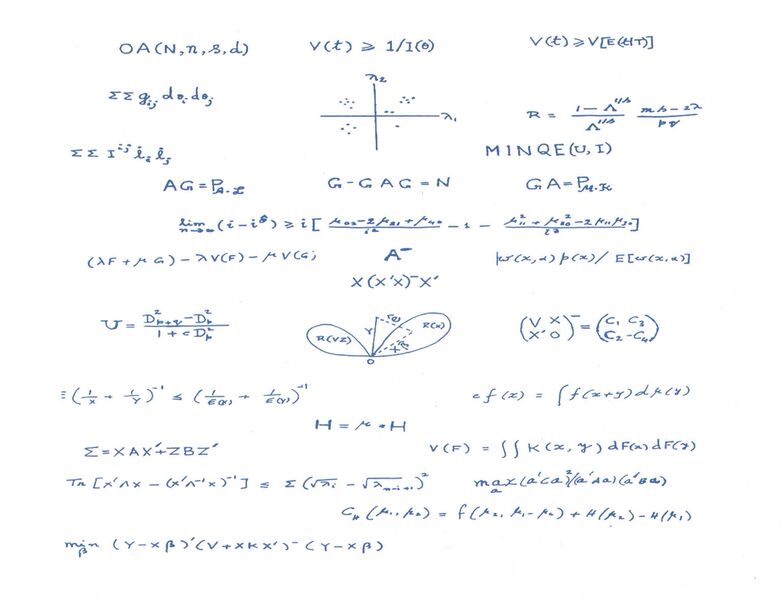 OA(N,n,s,d)    V(t) ⩾ 1/I(θ)    V(t) ⩾ V[E(t|T)]
ΣΣ g_ij dθ_i dθ_j
λ₂
λ₁
R = (1 − Λ^{1/s})/Λ^{1/s} (ms − 2λ)/(pq)
ΣΣ I^{ij} l_i l_j    MINQE(U,I)
AG = P_{A·L}    G − GAG = N    GA = P_{M·K}
lim_{n→∞} (i − i^s) ⩾ i[(μ₀₂ − 2μ₂₁ + μ₄₀)/i² − 1 − (μ₁₁² + μ₃₀² − 2μ₁₁μ₃₀)/i³]
(λF + μG) − λV(F) − μV(G;    A⁻    |w(x,α) p(x)/ E[w(x,α)]
X(X′X)⁻X′
U = (D²_{p+q} − D²_p)/(1 + cD²_p)    R(VZ)    Y    R(X)    O    (V X; X′ O)⁻ = (C₁ C₃; C₂ −C₄)
Ξ(1/X + 1/Y)⁻¹ ⩽ (1/E(X) + 1/E(Y))⁻¹    c f(x) = ∫f(x+y)dμ(y)
H = μ * H
Σ = XAX′ + ZBZ′    V(F) = ∫∫K(x,y)dF(x)dF(y)
Tr[X′ΛX − (X′Λ⁻¹X)⁻¹] ⩽ Σ(√λ_i − √λ_{n−i+1})²    max_a (a′Ca)²/(a′Aa)(a′Ba)
C_H(μ₁,μ₂) = f(μ₂, μ₁−μ₂) + H(μ₂) − H(μ₁)
min_β (Y − Xβ)′(V + XKX′)⁻(Y − Xβ)